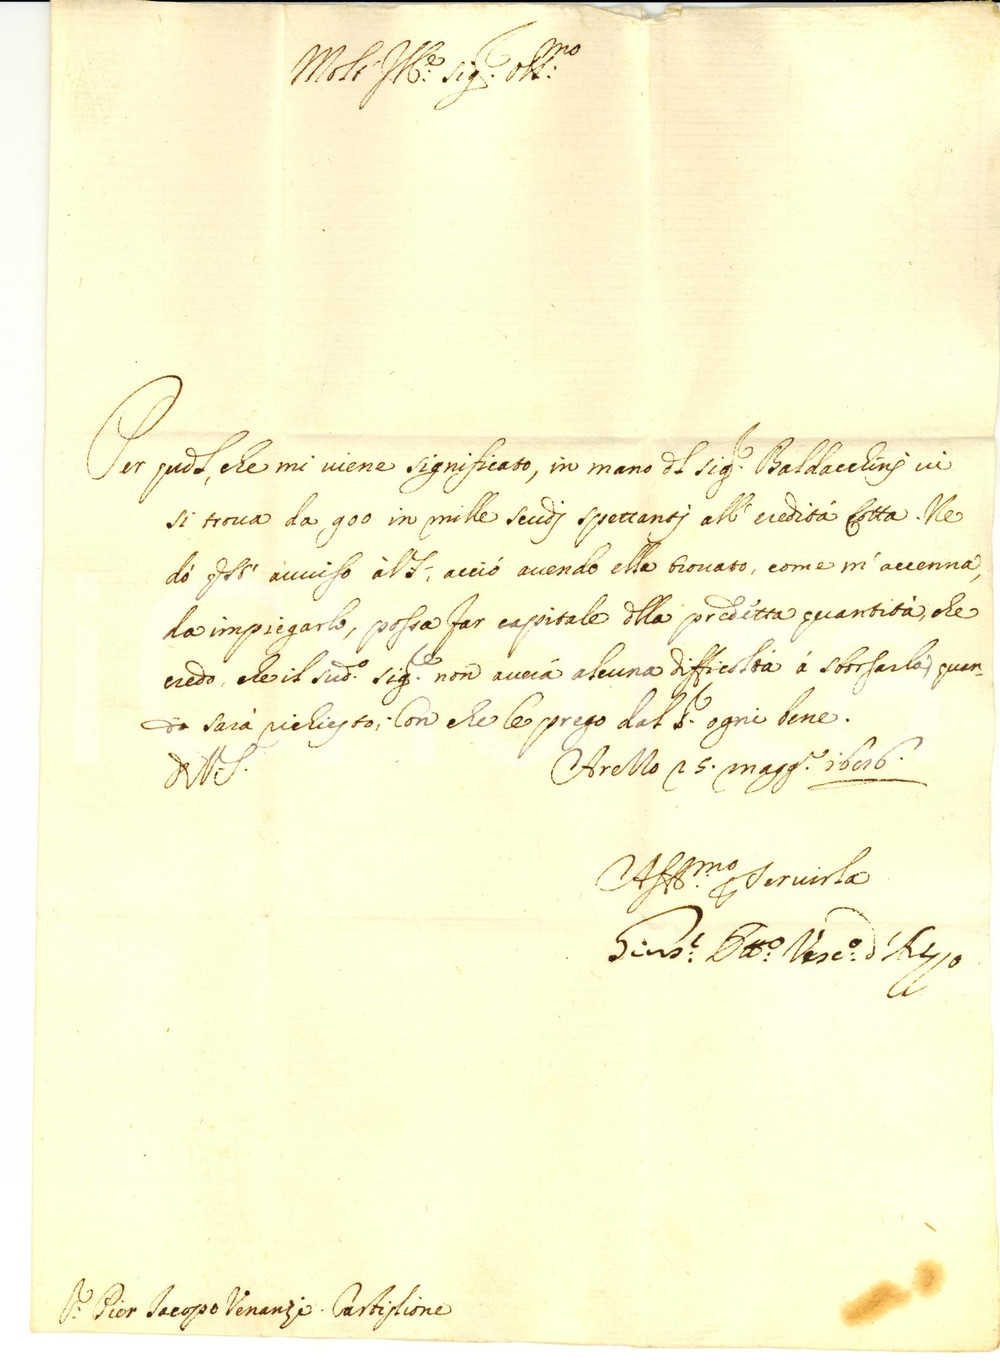 Molt' Ill:e Sig:re Oss:mo
Per quãt, che mi viene significato, in mano dl sig:re Baldacchinj vi
si troua da 900 in mille scudj spettantj all' eredità Cotta. Ne
dò q̃sto auuiso à V.S., acciò auendo ella trouato, come m'accenna,
da impiegarlo, possa far capitale dlla predetta quantità, che
credo, che il sud:o sig:re non auerà alcuna difficoltà à sborsarla, quan-
do sarà richiesto; Con che le prego dal S:re ogni bene.
D V. S. Arezzo 25. magg:o
Aff:mo p seruirla
Vesc:o d'Arezzo
S:r Pier Iacopo Venanzi. Castiglione